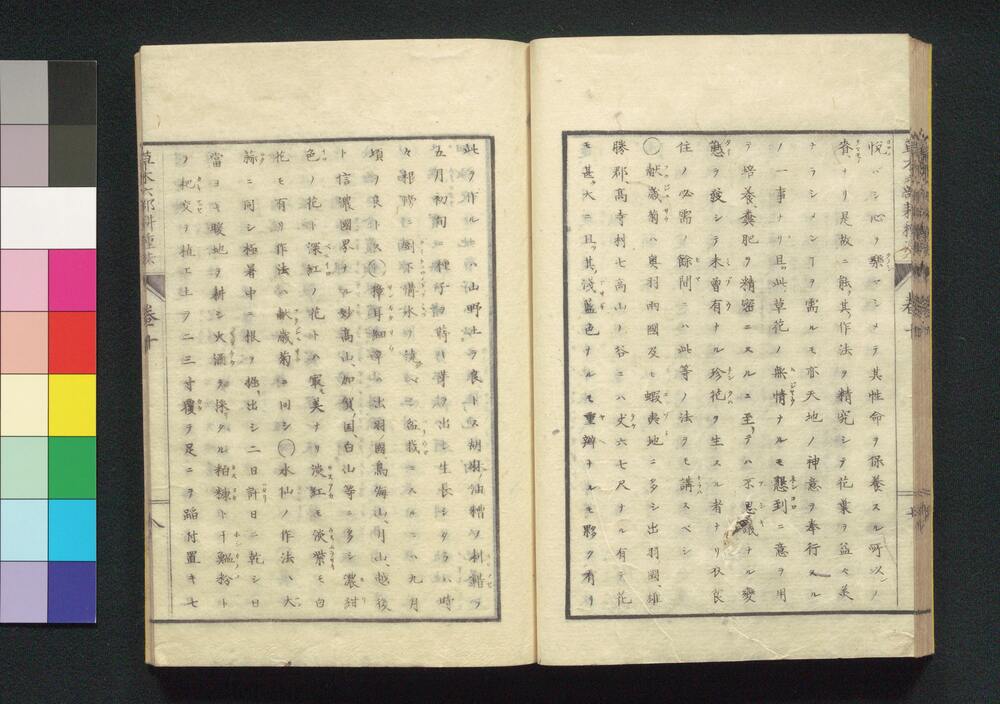 悅バシ心ヲ樂マシメテ其性命ヲ保養スル所以ンノ
資ナリ是故ニ能其作法ヲ精究シテ花葉ヲ益々美
ナラシメンヿヲ需ルモ亦天地ノ神意ヲ奉行スル
ノ一事ナリ且此草花ノ無情ナルモ懇到ニ意ヲ用
テ培養糞肥ヲ精密ニスルニ至テハ不思議ナル變
態ヲ發シテ未曾有ナル珍花ヲ生スル者ナリ衣食
住ノ必需ノ餘間ニハ此等ノ法ヲモ講スベシ
○献歳菊ハ奥羽兩國及モ蝦夷地ニ多シ出羽國雄
勝郡高寺村七高山ノ谷ニハ丈六七尺ナル有テ花
モ甚大ニ且其淺藍色ナルモ重瓣ナルモ夥ク有リ
此ヲ作ルハ山野土ヲ良トス胡麻油糟ヲ刺錯ヲ
五月初旬ニ種ヲ時ハ芽ヲ出シ生長シタラバ時
々根際ニ溝水ヲ澆ベシ盆栽ニスルニハ九月
頃ヲ良トス○樟耳細辛ハ出羽國鳥海山月山越後
ト信濃國界ナル妙高山加賀國白山等ニ多シ濃紺
色ノ花ト深紅ノ花トハ寂美ナリ淡紅モ淡紫モ白
花モ有リ作法ハ献歳菊ニ同シ○水仙ノ作法ハ大
蒜ニ同シ極暑中ニ根ヲ掘出シ二日許日ニ乾シ日
當ヨキ暖地ヲ耕シ火酒ヲ採タル粕糠ト干鰮粉ト
ノ把交ヲ植エ土ヲ二三寸覆ヲ足ニテ蹈付置キ七
草木六部耕種法
卷十
八